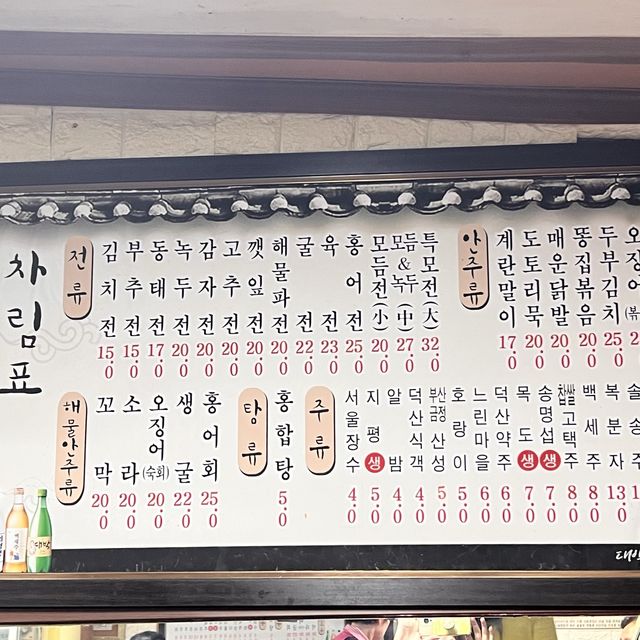 차림표
전류
김치전 15.0
부추전 15.0
동태전 17.0
녹두전 20.0
감자전 20.0
고추전 20.0
깻잎전 20.0
해물파전 20.0
굴전 22.0
육전 23.0
홍어전 25.0
모듬전(小) 20.0
모듬&녹두(中) 27.0
특모전(大) 32.0
안주류
계란말이 17.0
도토리묵 20.0
매운닭발 20.0
똥집볶음 20.0
두부김치 25.0
오징어(볶
해물안주류
꼬막 20.0
소라 20.0
오징어(숙회) 20.0
생굴 22.0
홍어회 25.0
탕류
홍합탕 5.0
주류
서울장수 4.0
지평 생 5.0
알밤 4.0
덕산식객 4.0
부산금정산성 5.0
호랑이 5.0
느린마을 6.0
덕산약주 6.0
목도 생 7.0
송명섭 생 7.0
찹쌀고택주 8.0
백세주 8.0
복분자 13.0
솔송주